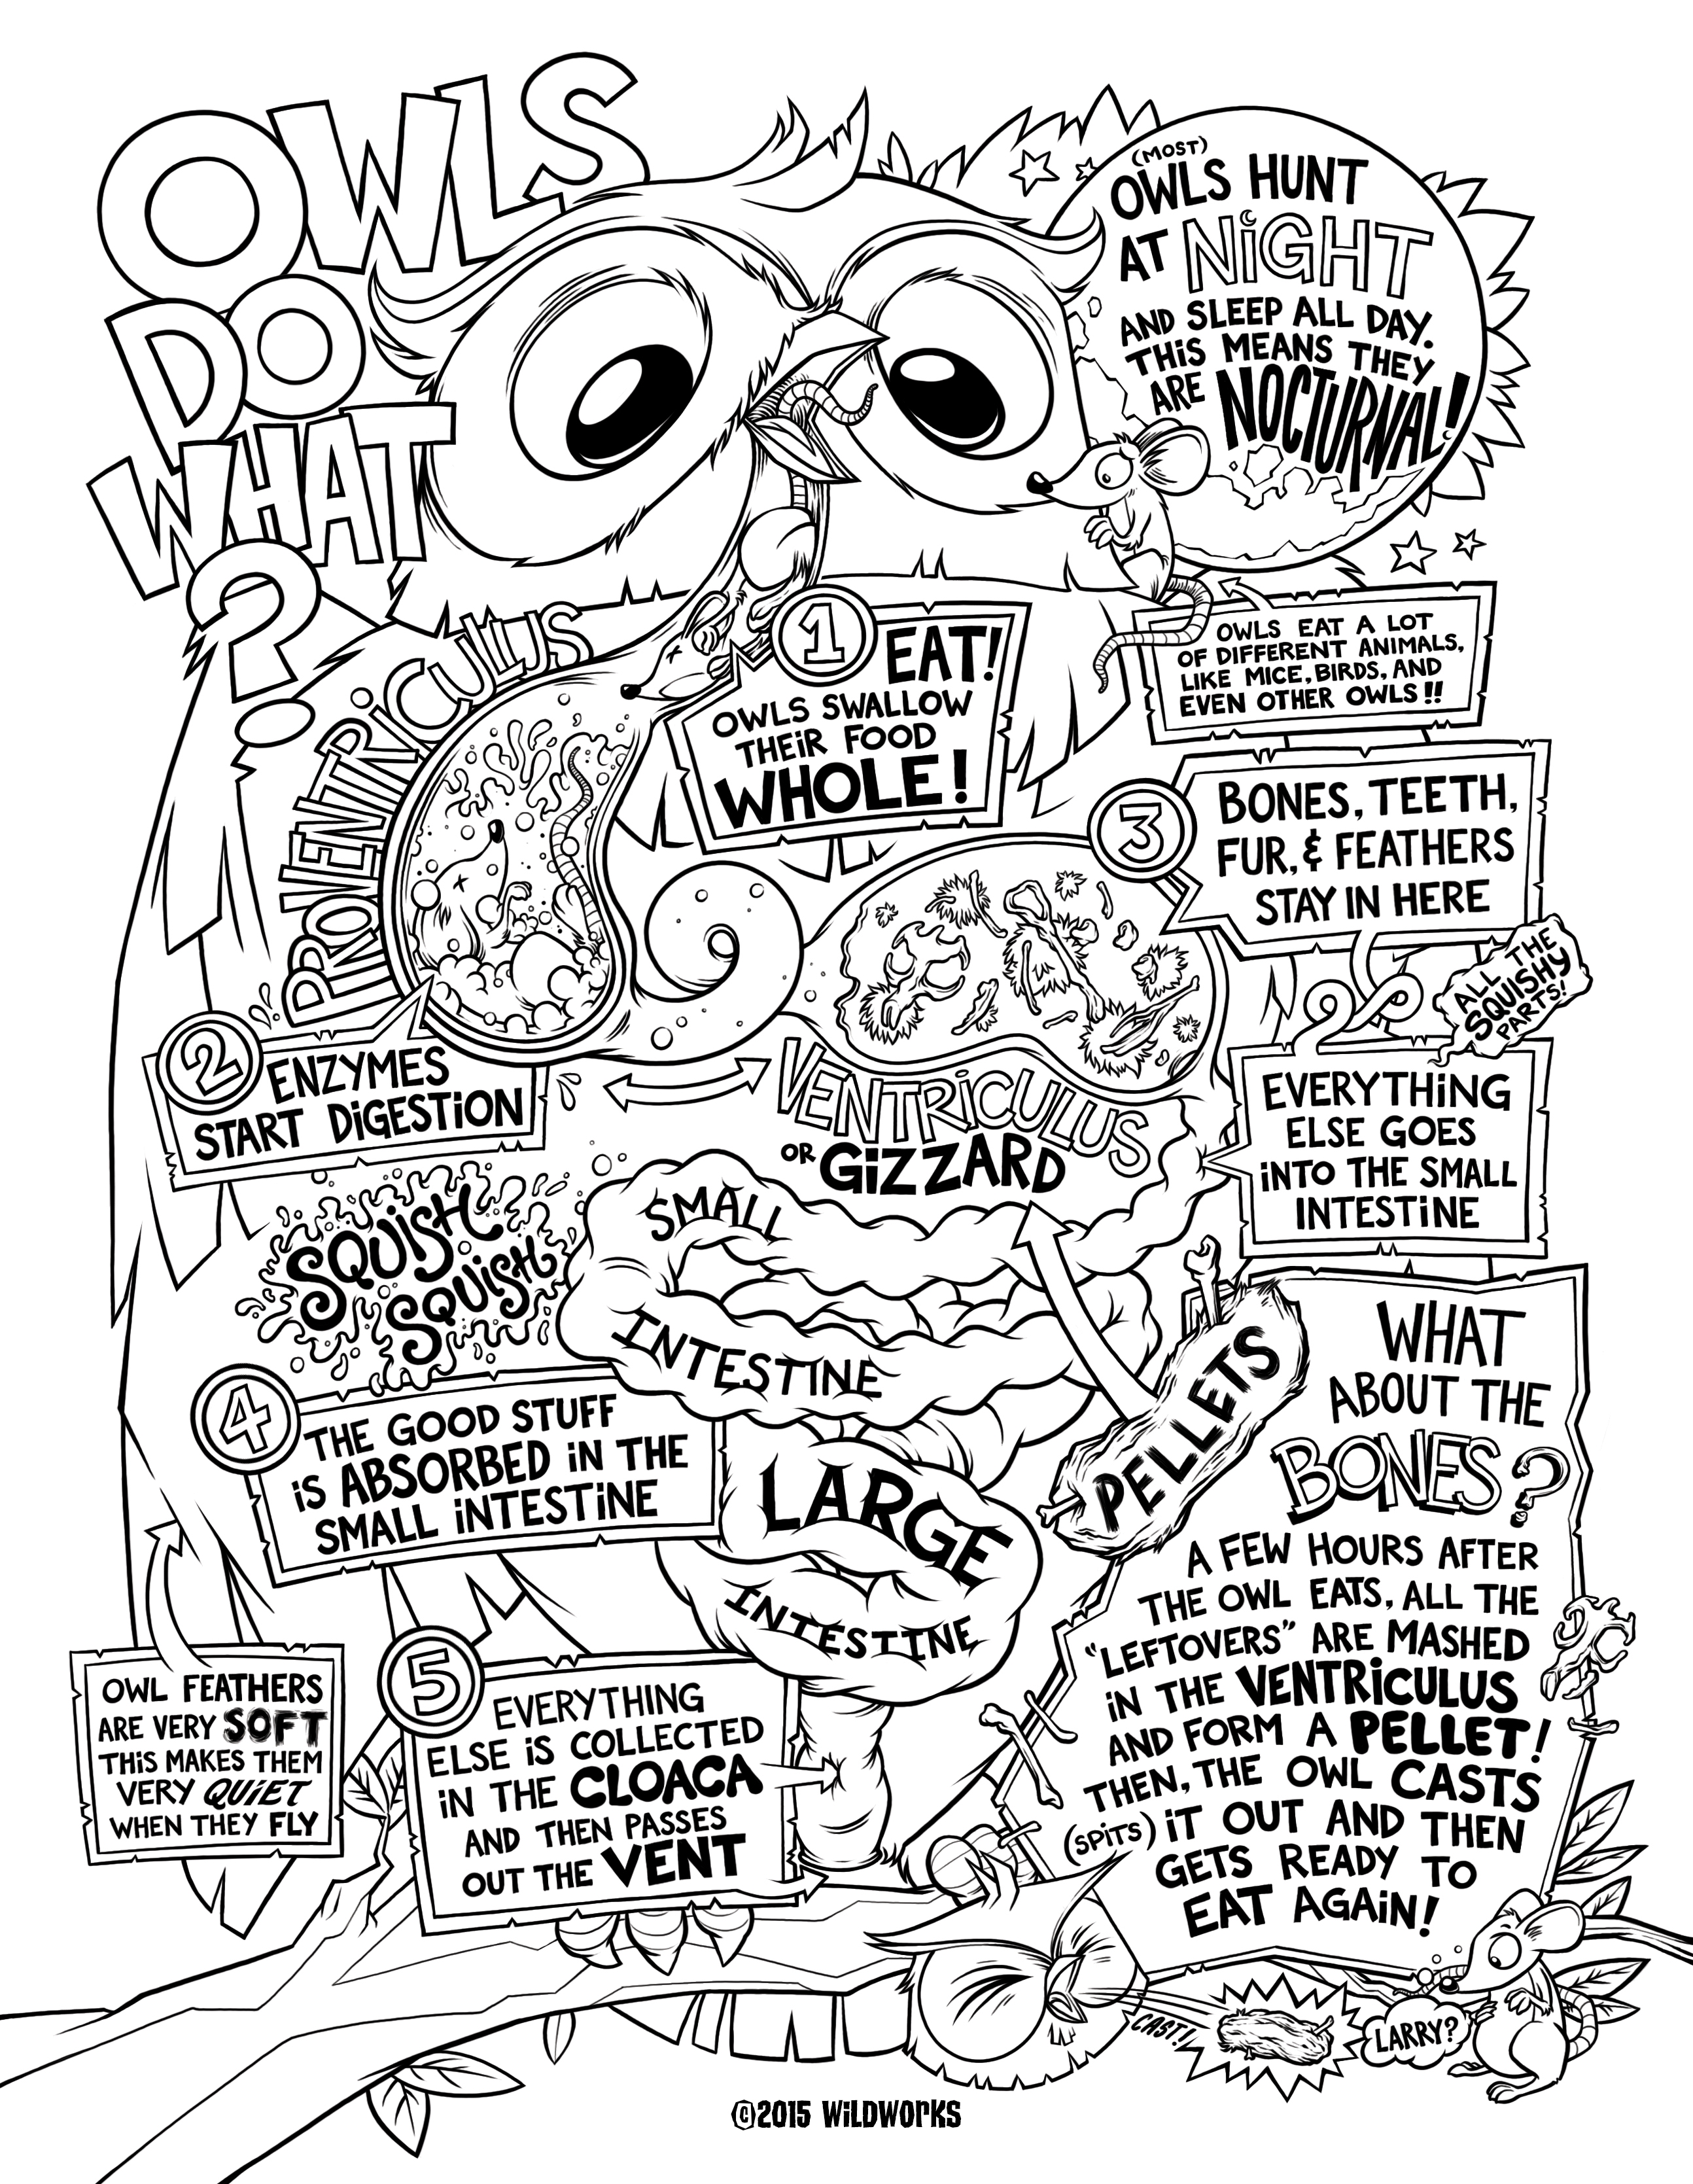 OWLS
DO
WHAT
?
(MOST)
OWLS HUNT
AT NiGHT
AND SLEEP ALL DAY.
THiS MEANS THEY
ARE NOCTURNAL!
OWLS EAT A LOT
OF DIFFERENT ANIMALS,
LIKE MICE, BIRDS, AND
EVEN OTHER OWLS!!
1 EAT!
OWLS SWALLOW
THEiR FOOD
WHOLE!
PROVENTRiCULUS
2 ENZYMES
START DiGESTiON
3 BONES, TEETH,
FUR, & FEATHERS
STAY IN HERE
ALL THE
SQUISHY
PARTS!
VENTRiCULUS
OR GiZZARD
EVERYTHiNG
ELSE GOES
iNTO THE SMALL
INTESTiNE
SQUiSH
SQUiSH
SMALL
INTESTINE
4 THE GOOD STUFF
iS ABSORBED iN THE
SMALL iNTESTiNE
LARGE
INTESTINE
5 EVERYTHING
ELSE iS COLLECTED
iN THE CLOACA
AND THEN PASSES
OUT THE VENT
OWL FEATHERS
ARE VERY SOFT
THiS MAKES THEM
VERY QUiET
WHEN THEY FLY
PELLETS
WHAT
ABOUT THE
BONES?
A FEW HOURS AFTER
THE OWL EATS, ALL THE
"LEFTOVERS" ARE MASHED
iN THE VENTRiCULUS
AND FORM A PELLET!
THEN, THE OWL CASTS
(SPiTS) iT OUT AND THEN
GETS READY TO
EAT AGAiN!
CAST!
LARRY?
©2015 WiLDWORKS